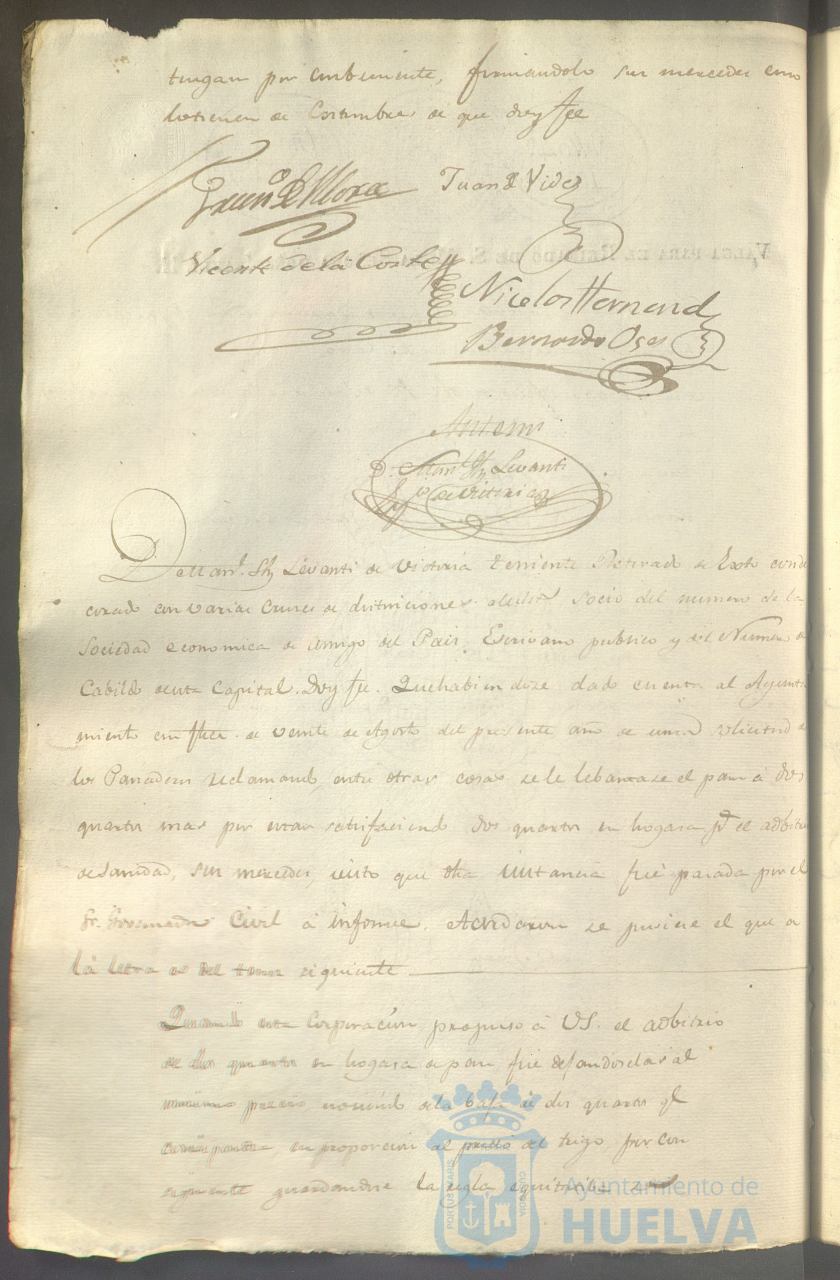 tengan por combeniente, firmandolo sus mercedes como
lo tienen de Costumbre de que doy fee
Franco de Mora Juan de Vides
Vicente de la Corte
Nicolas Hernand
Bernardo Oses
Antemi
Dn. Manl. Levanti
de Vitoria
Dn. Manl. Levanti de Victoria Teniente Retirado de Exto conde
corado con varias cruces de distinciones socio del numero de la
Sociedad economica de Amigo del Pais, Escribano publico y del Numero
Cabildo de esta Capital. Doy fee. Que habiendose dado cuenta al Ayunta
miento en de veinte de Agosto del presente año de una solicitud de
los Panaderos reclamando, entre otras cosas se le lebantase el pan à dos
quartos mas por estar satisfaciendo dos quartos en hogasa pr. el adbitrio
de sanidad, sus mercedes, visto que dha instancia fué pasada por el
Sr. Governador Civil à informe. Acordaron se pusiese el que a
la letra es del tenor siguiente
Quando esta Corporación propuso à VS. el adbitrio
de dos quartos en hogasa de pan fue dejandoselas al
precio de la de dos quartos qe.
en proporcion al precio del trigo por con
siguiente guardandose la regla equitativa
PORTUS MARIS CUSTODIA
Ayuntamiento de
HUELVA